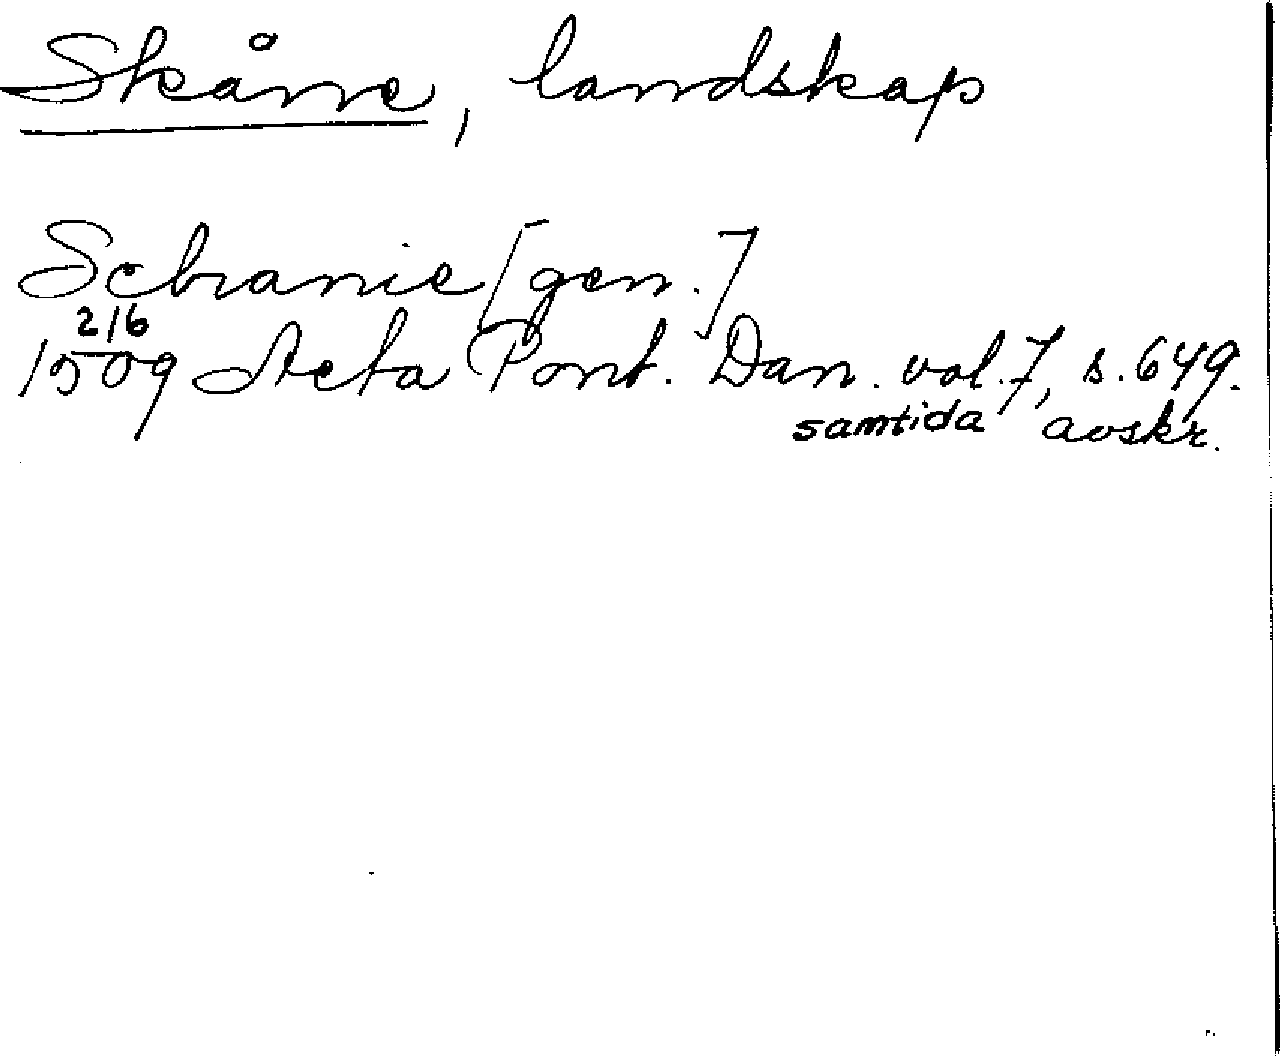 Skåne, landskap
Scbranie [gen.]
2/6
1509 Acta Pont. Dan. vol. 7, s. 649.
samtida avskr.